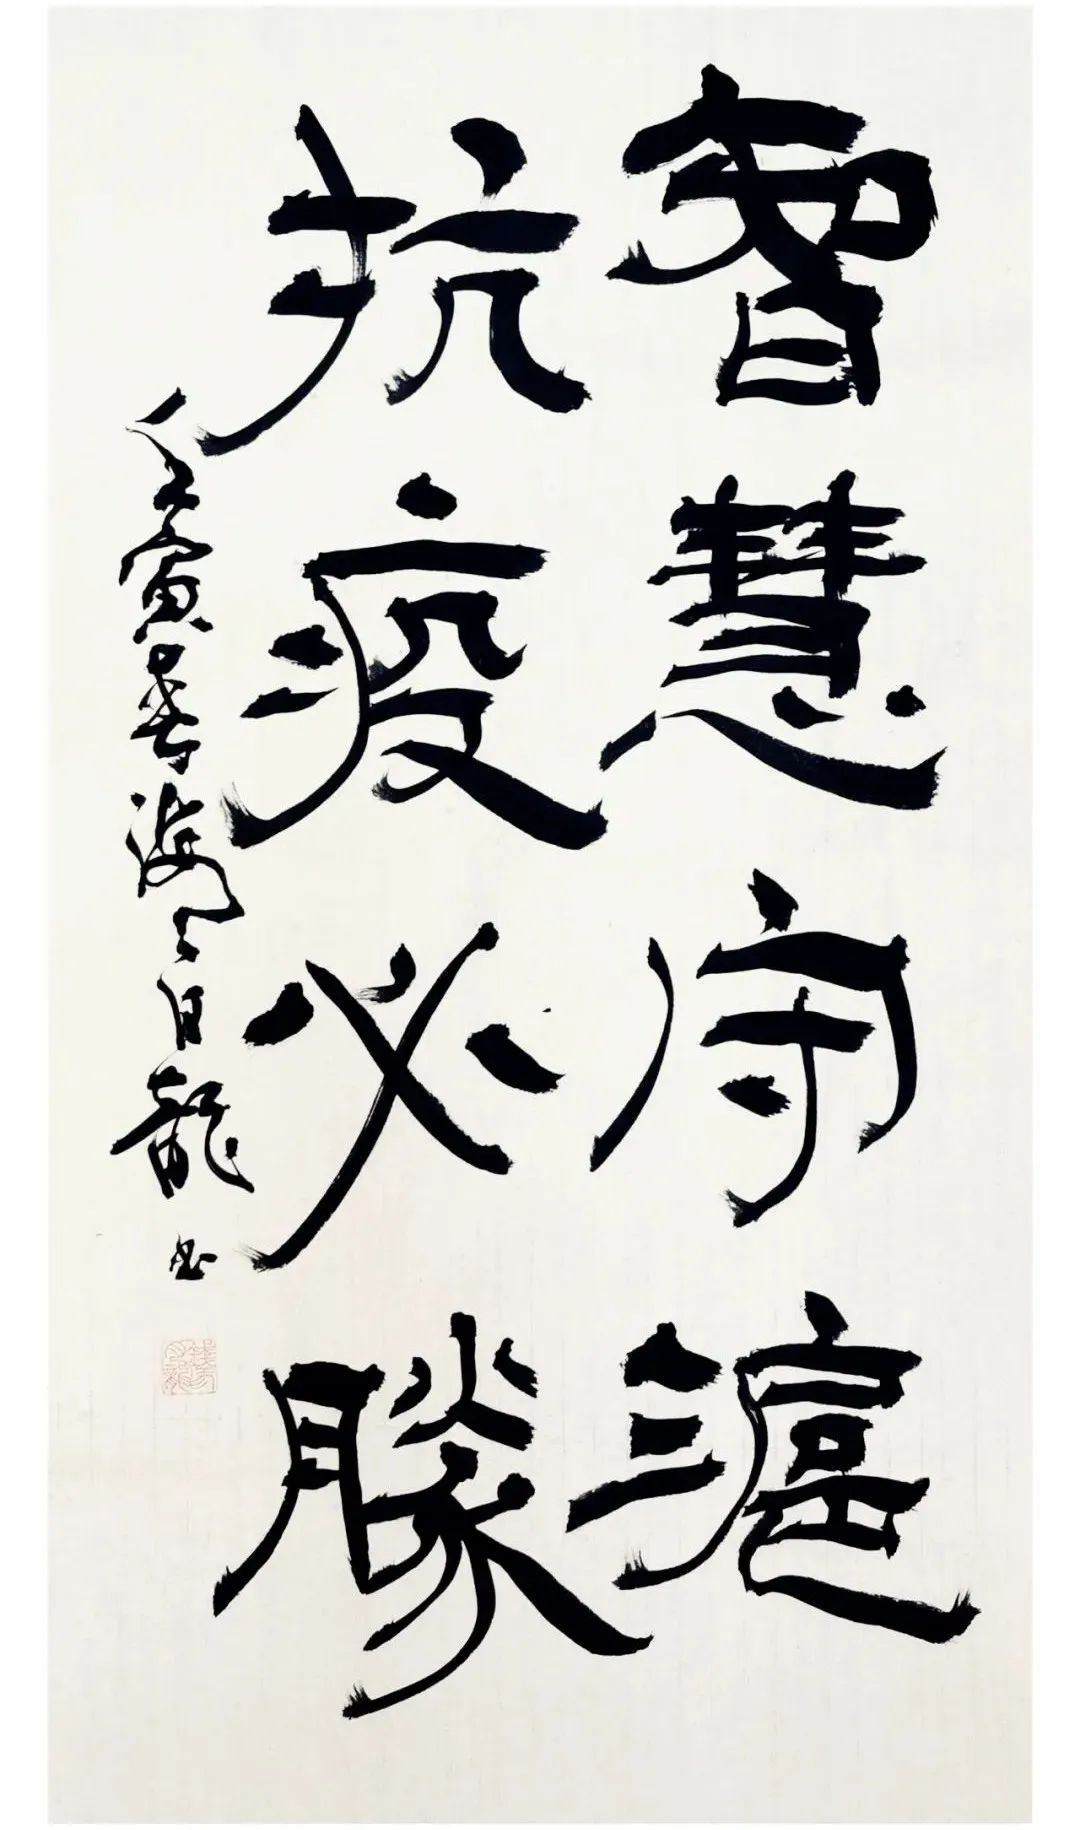 智慧守滬
抗疫必勝
壬寅春海上日龍书